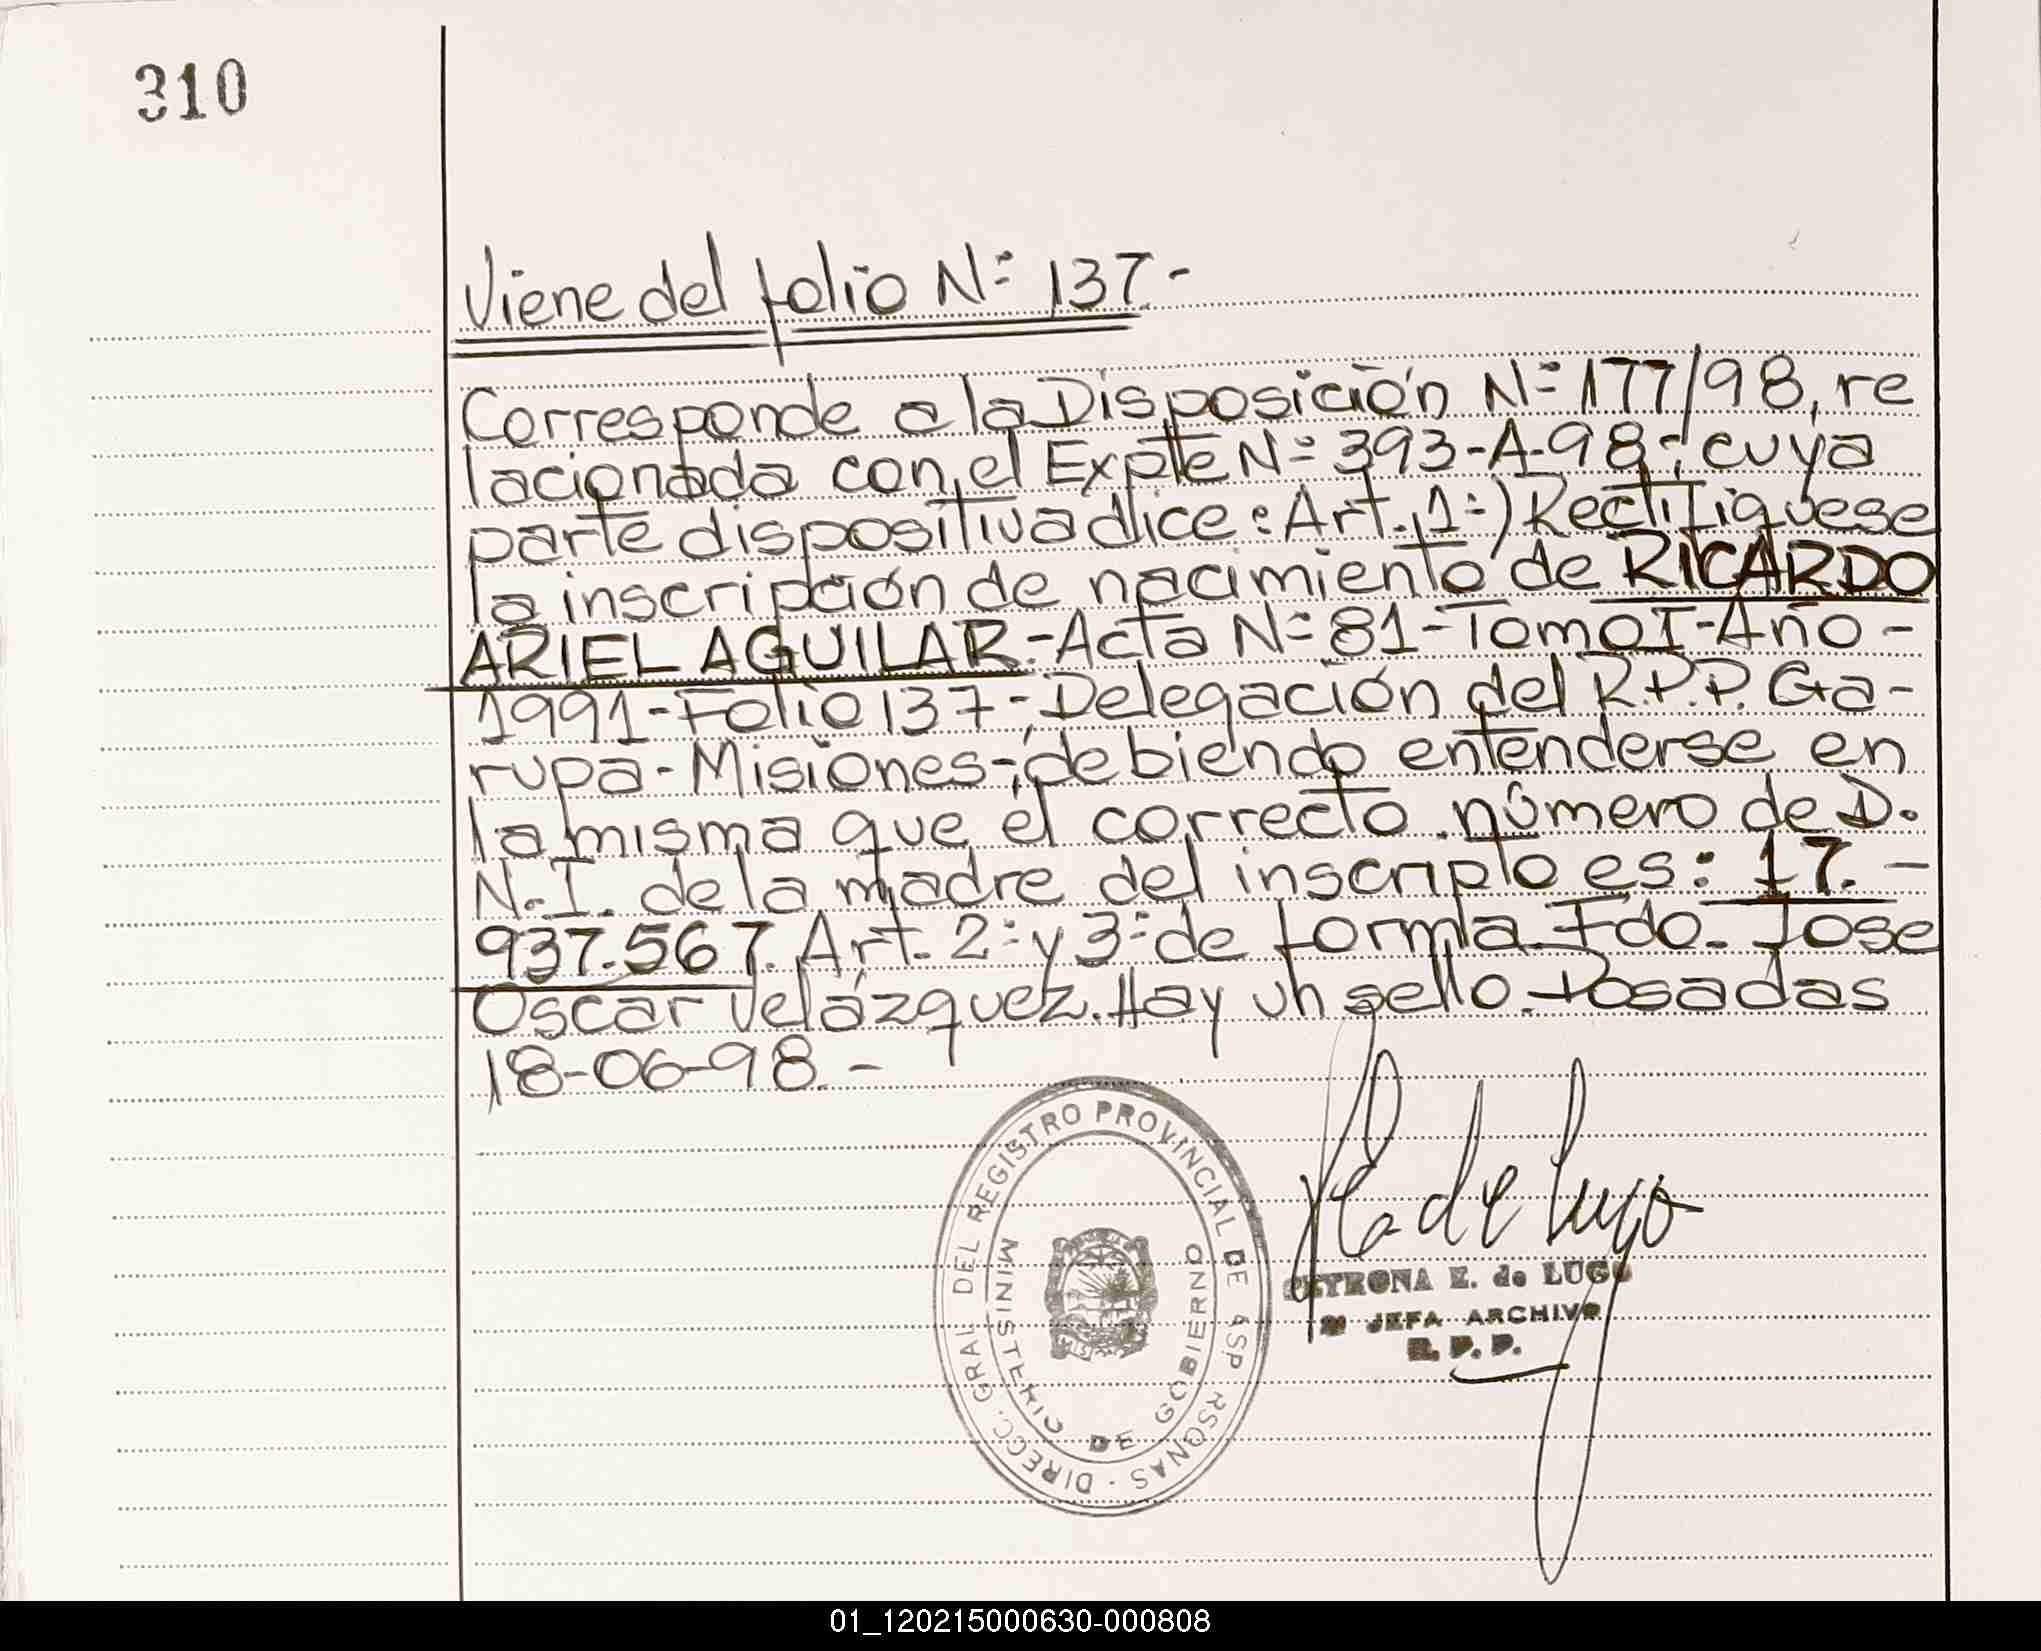 310
Viene del folio Nº 137.-
Corresponde a la Disposición Nº 177/98, re
lacionada con el Expte Nº 393-A-98; cuya
parte dispositiva dice: Art. 1º) Rectifiquese
la inscripción de nacimiento de RICARDO
ARIEL AGUILAR.-Acta Nº 81-Tomo I-Año-
1991-Folio 137-, Delegación del R.P.P. Ga-
rupa-Misiones-; debiendo entenderse en
la misma que el correcto número de D.
N.I. de la madre del inscripto es: 17.-
937.567. Art. 2º y 3º de forma. Fdo. Jose
Oscar Velázquez. Hay un sello. Posadas
18-06-98.-
DIRECC. GRAL DEL REGISTRO PROVINCIAL DE PERSONAS -
MINISTERIO DE GOBIERNO
de Lugo
PETRONA E. de LUGO
JEFA ARCHIVO
R.P.P.
01_120215000630-000808